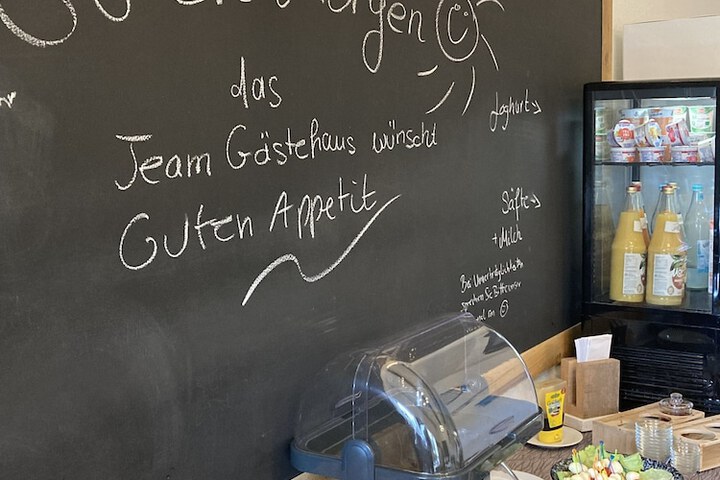 Guten Morgen
das
Team Gästehaus wünscht
Guten Appetit
Joghurt
Säfte
+ Milch
Bei Unverträglichkeiten
sprechen Sie Bitte